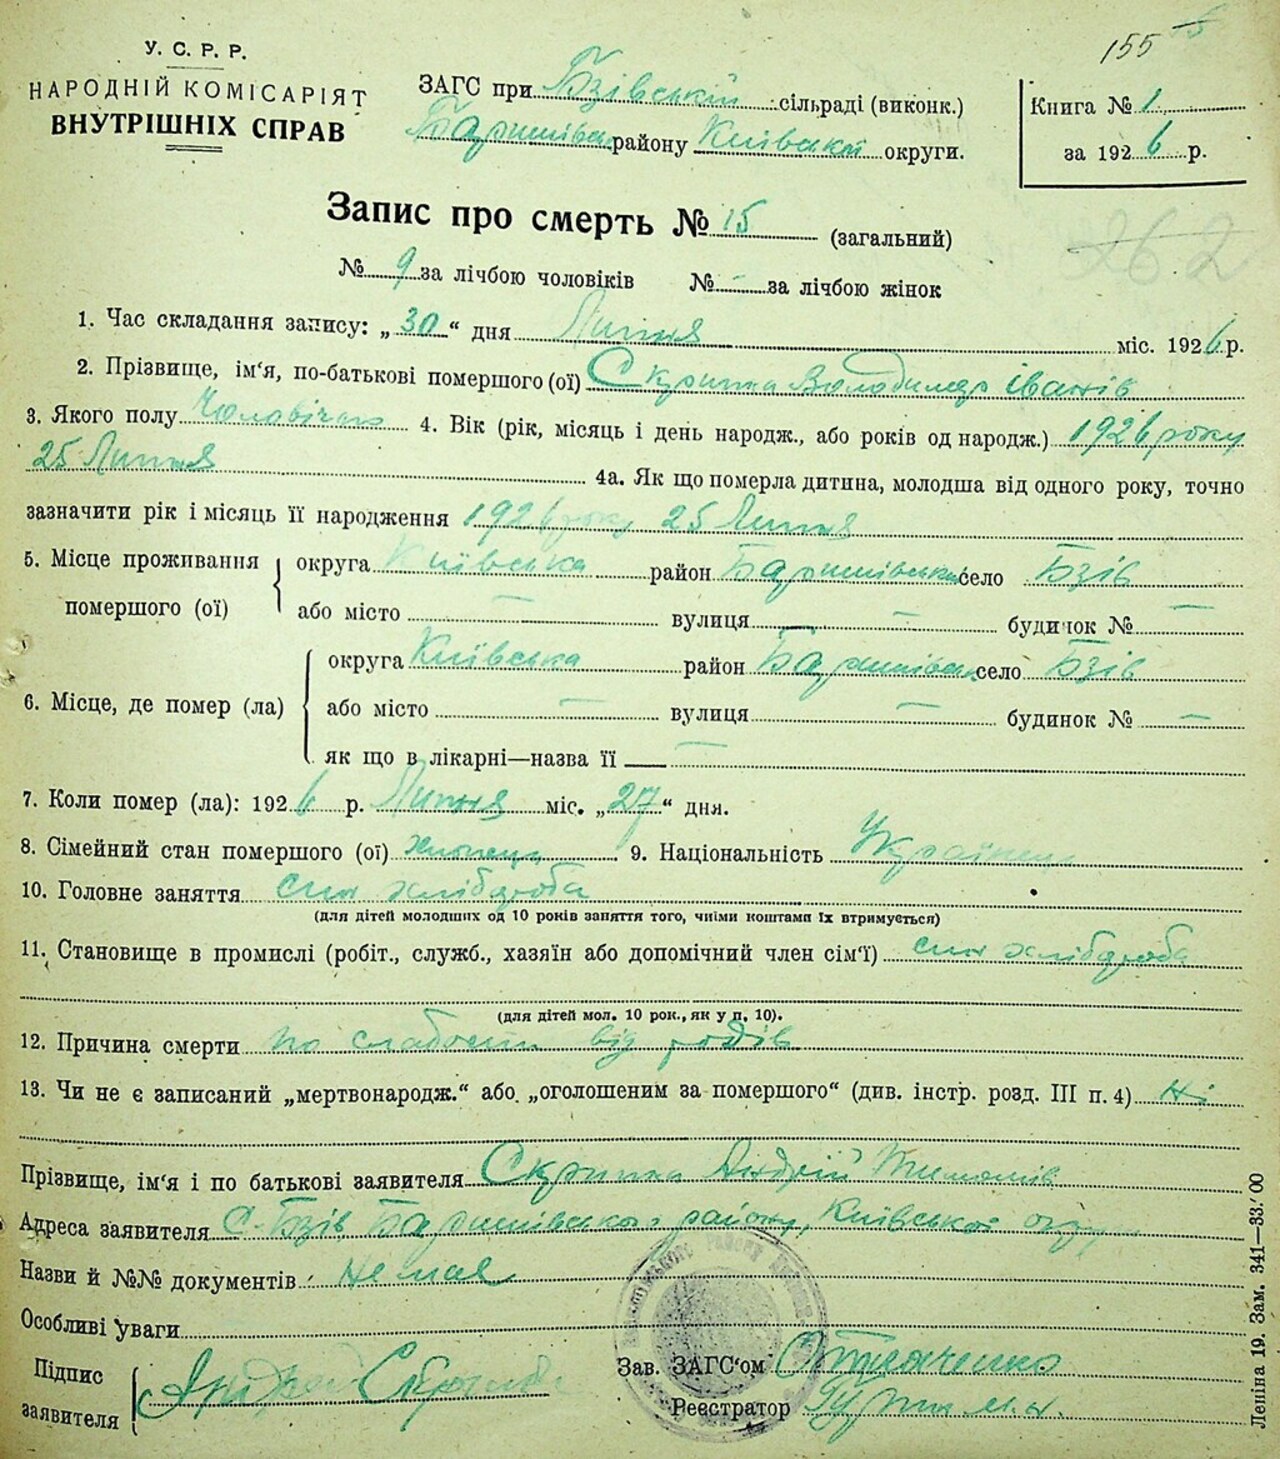 155
У. С. Р. Р.
НАРОДНІЙ КОМІСАРІЯТ
ВНУТРІШНІХ СПРАВ
ЗАГС при Бзівській сільраді (виконк.)
Баришівськ району Київської округи.
Книга № 1
за 1926 р.
Запис про смерть № 15 (загальний)
262
№ 9 за лічбою чоловіків № - за лічбою жінок
1. Час складання запису: „30“ дня Липня міс. 1926 р.
2. Прізвище, ім'я, по-батькові помершого (ої) Скрипка Володимер Іванів
3. Якого полу Чоловічого 4. Вік (рік, місяць і день народж., або років од народж.) 1926 року
25 Липня 4а. Як що померла дитина, молодша від одного року, точно
зазначити рік і місяць її народження 1926 року 25 Липня
5. Місце проживання помершого (ої) округа Київська район Баришівський село Бзів
або місто — вулиця — будинок № —
6. Місце, де помер (ла) округа Київська район Баришівськ село Бзів
або місто — вулиця — будинок № —
як що в лікарні—назва її —
7. Коли помер (ла): 1926 р. Липня міс. „27“ дня.
8. Сімейний стан помершого (ої) хлопець 9. Національність Українець
10. Головне заняття син хлібороба
(для дітей молодших од 10 років заняття того, чиїми коштами їх втримується)
11. Становище в промислі (робіт., служб., хазяїн або допомічний член сім'ї) син хлібороба
(для дітей мол. 10 рок., як у п. 10).
12. Причина смерти по слабости від родів
13. Чи не є записаний „мертвонародж.“ або „оголошеним за помершого“ (див. інстр. розд. III п. 4) Ні
Прізвище, ім'я і по батькові заявителя Скрипка Андрій
Адреса заявителя С. Бзів, Баришівського району, Київської округи
Назви й №№ документів: немає
Особливі уваги
Підпис заявителя Андрей Скрипка
Зав. ЗАГС'ом Ткаченко
Реєстратор
Леніна 19. Зам. 341—33.'00